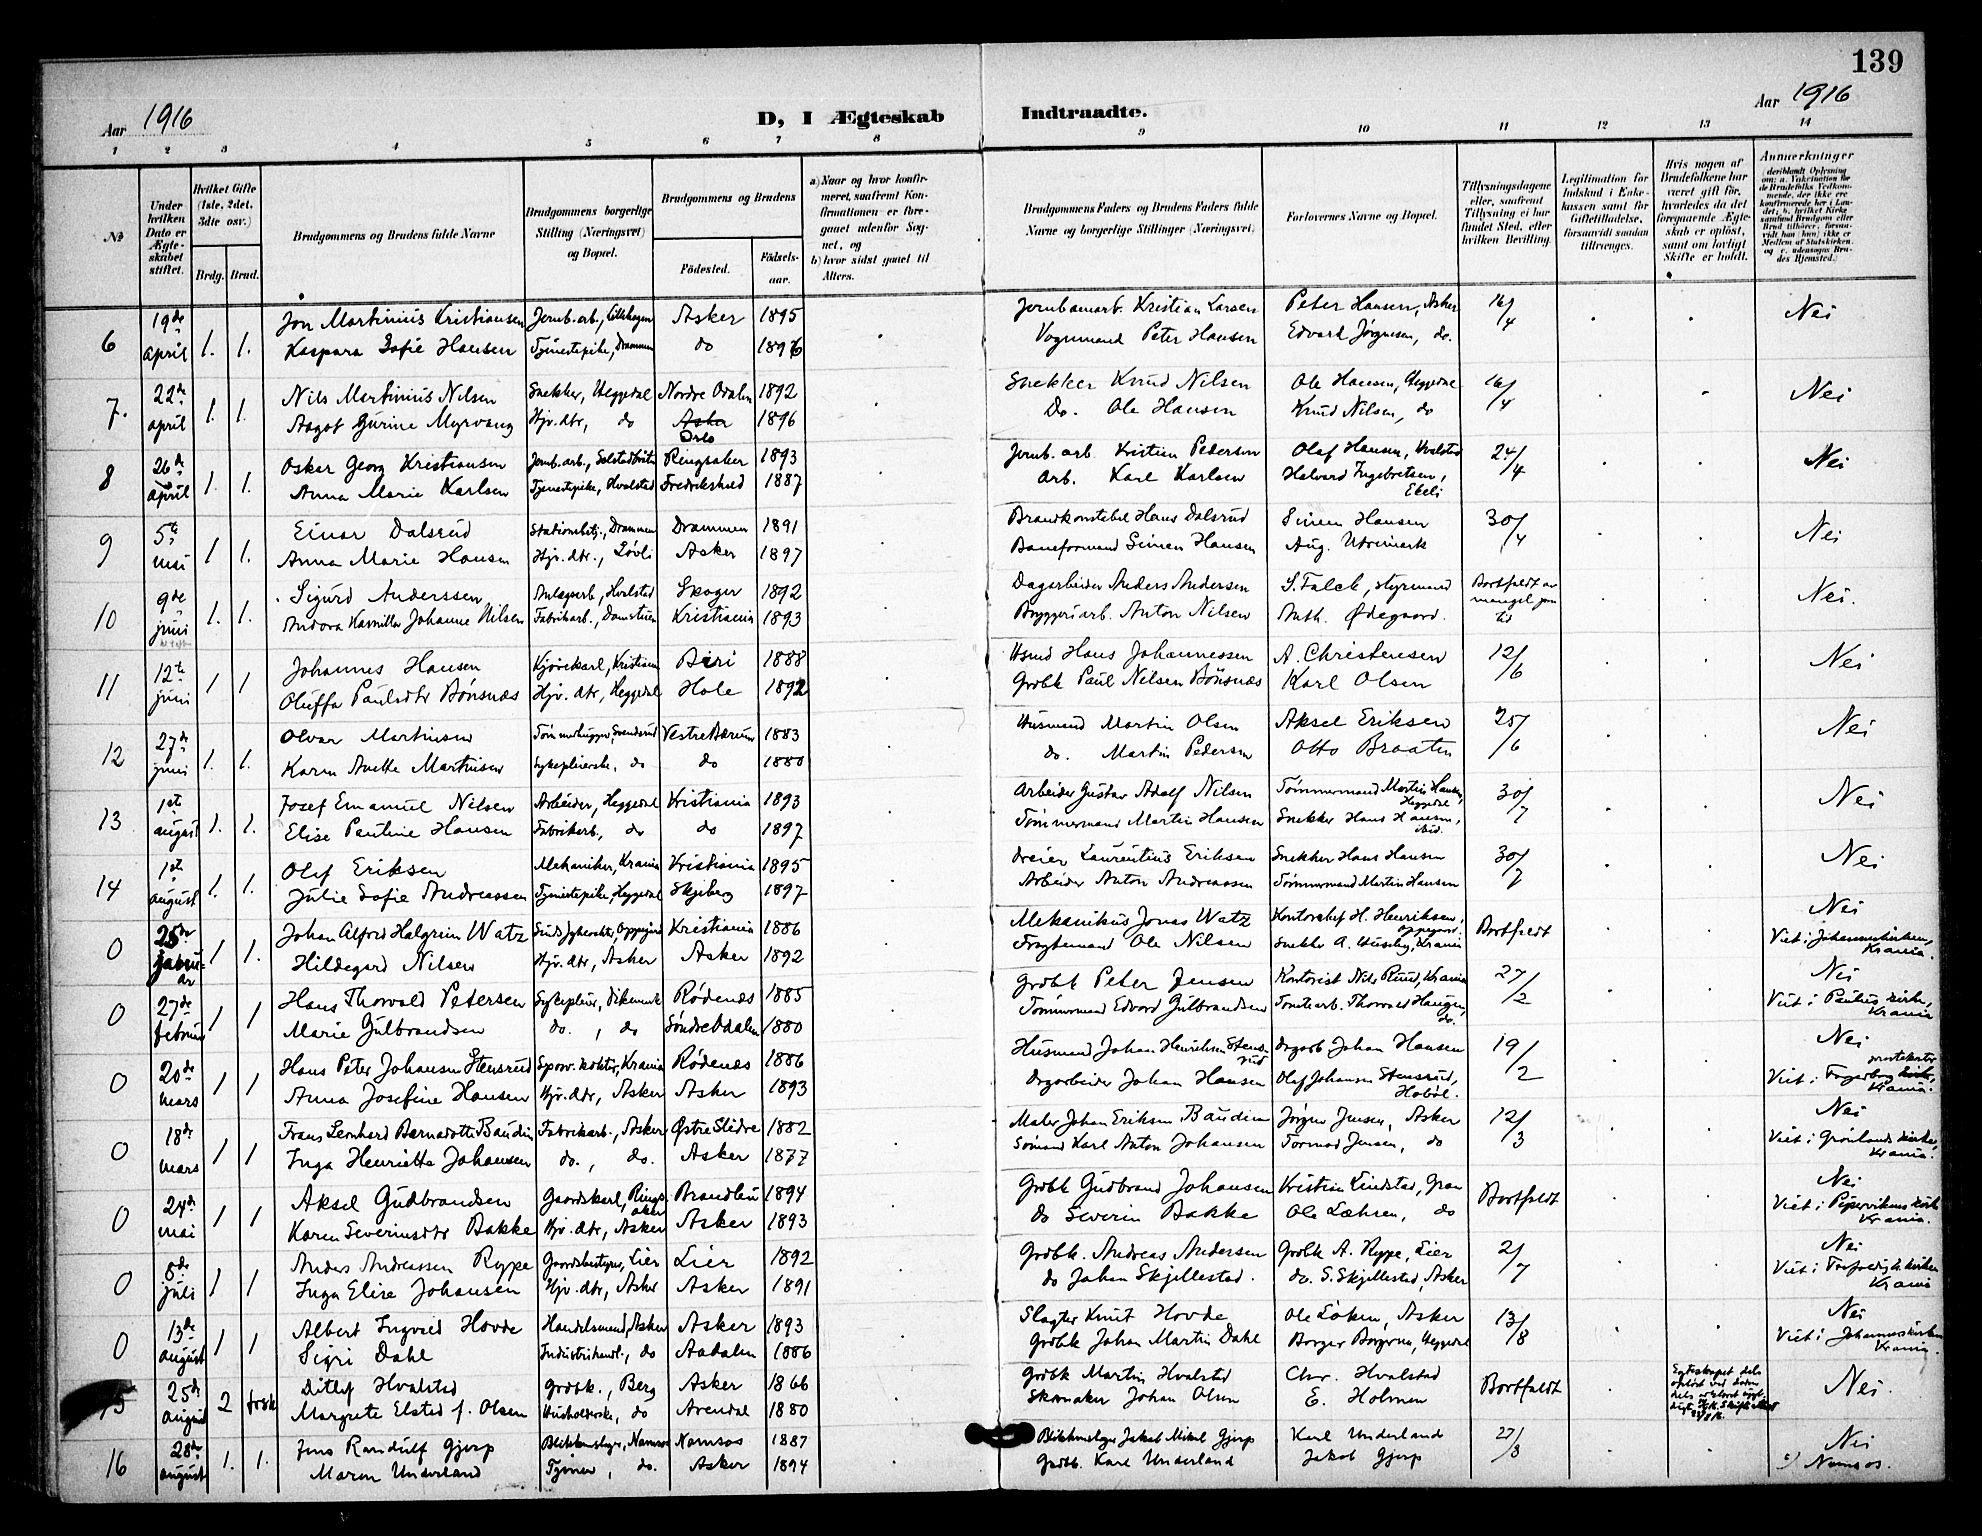 139
Aar 1916
D, I Ægteskab Indtraadte.
Aar 1916
1 2 3 4 5 6 7 8 9 10 11 12 13 14
№
Under hvilken Dato er Ægteskabet stiftet.
Hvilket Gifte (1ste, 2det, 3die osv.)
Brdg. Brud.
Brudgommens og Brudens fulde Navne
Brudgommens borgerlige Stilling (Næringsvei) og Bopæl.
Brudgommens og Brudens
Fødested.
Fødselsaar.
a) Naar og hvor konfirmeret, saafremt Konfirmationen er foregaaet udenfor Sognet, og
b) hvor sidst gaaet til Alters.
Brudgommens Faders og Brudens Faders fulde Navne og borgerlige Stillinger (Næringsvei)
Forlovernes Navne og Bopæl.
Tillysningsdagene eller, saafremt Tillysning ei har fundet Sted, efter hvilken Bevilling.
Legitimation for Indskud i Enkekassen samt for Giftetilladelse, forsaavidt saadan tiltrænges.
Hvis nogen af Brudefolkene har været gift før, hvorledes da det foregaaende Ægteskab er opløst, samt om lovligt Skifte er holdt.
Anmerkninger
6 19de april 1. 1. Jon Martinius Kristiansen Jernb.arb., Asker 1895 Jernbanearb. Kristian Larsen Peter Hansen, Asker 16/4 Nei
Kaspara Sofie Hansen Tjenestepike, Drammen do 1896 Vognmand Peter Hansen Edvard Jørgensen, do.
7. 22de april 1. 1. Nils Martinius Nilsen Snekker, Heggedal Nordre Odalen 1892 Snekker Knud Nilsen Ole Hansen, Heggedal 16/4 Nei
Aagot Gurine Myrvang Hjv. dtr, do Asker Oslo 1896 Do. Ole Hansen Knud Nilsen, do
8 26de april 1. 1. Oskar Georg Kristiansen Jernb.arb., Ringsaker 1893 Jernb. arb. Kristian Pedersen Olaf Hansen, Hvalstad 24/4 Nei
Anna Marie Karlsen Tjenestepike, Hvalstad Fredrikshald 1887 Arb. Karl Karlsen Halvard Ingebretsen,
9 5te mai 1 1. Einar Dalsrud Stationsbetj., Drammen Drammen 1891 Brandkonstabel Hans Dalsrud Simen Hansen 30/4 Nei
Anna Marie Hansen Hjv. dtr., Løvli Asker 1897 Baneformand Simen Hansen Aug. Utreimark
10 9de juni 1. 1. Sigurd Anderssen Anlægsarb., Hvalstad Skoger 1892 Dagarbeider Anders Andersen S. Falck, styrmand Bortfaldt av mangel paa tid Nei.
Andora Johanne Nilsen Fabrikarb., Kristiania 1893 Bryggeriarb. Anton Nilsen Anth. Ødegaard.
11 12te juni 1 1 Johannes Hansen Kjørekarl, Kristiania Biri 1888 Hsmd Hans Johannessen A. Christensen 12/6 Nei
Oluffa Paulsdtr Bønsnæs Hjv. dtr, Heggedal Hole 1892 Grdbk Paul Nilsen Bønsnæs Karl Olsen
12 27de juni 1. 1. Olvar Martinsen Tømmerhugger, Vestre Bærum 1883 Husmand Martin Olsen Aksel Eriksen 25/6 Nei
Karen Anette Martinsen Sykepleierske, do do 1880 do. Martin Pedersen Otto Braaten
13 1ste august 1. 1. Josef Emanuel Nilsen Arbeider, Heggedal Kristiania 1893 Arbeider Gustav Adolf Nilsen Tømmermand Martin Hansen, Heggedal 30/7 Nei
Elise Pauline Hansen Fabrikarb., do do 1897 Tømmermand Martin Hansen Snekker Hans Hansen,
14 1ste august 1. 1. Olaf Eriksen Mekaniker, Krania Kristiania 1895 Dreier Laurentius Eriksen Snekker Hans Hansen 30/7 Nei
Julie Sofie Andreassen Tjenestepike, Heggedal Skjeberg 1897 Arbeider Anton Andreassen Tømmermand Martin Hansen
0 25de januar 1. 1. Johan Alfred Halgrim Watz Kristiania 1886 Mekanikus Jonas Watz Kontorchef H. Henriksen, Oppegaard. Bortfaldt Nei
Hildegard Nilsen Hjv. dtr, Asker Asker 1892 Fragtemand Ole Nilsen Snekker A. Huseby, Krania Viet i Johanneskirken, Krania.
0 27de februar 1 1 Hans Thorvald Petersen Sykepleier, Dikemark Rødenæs 1885 Grdbk Peter Jensen Kontorist Nils Ruud, Krania 27/2 Nei
Marie Gulbrandsen do. , do Søndre Odalen 1880 Tømmermand Edvard Gulbrandsen Tomtearb. Thorvald Haugen, do. Viet i Paulus kirke, Krania
0 20de mars 1 1 Hans Peter Johansen Stensrud Sporv. kondktør, Krania Rødenæs 1886 Husmand Johan Henriksen Stensrud Dagarb Johan Hansen 19/2 Nei
Anna Josefine Hansen Hjv. dtr, Asker Asker 1893 Dagarbeider Johan Hansen Olaf Johansen Stensrud, Hobøl. Viet i Fagerborg kirke, Krania.
0 18de mars 1 1 Frans Leonhard Bernadotte Baudin Fabrikarb., Asker Østre Slidre 1882 Maler Johan Eriksen Baudin Jørgen Jensen, Asker 12/3 Nei
Inga Henriette Johansen do., do. Asker 1877 Sømand Karl Anton Johansen Tormod Jensen, do Viet i Grønlands kirke, Krania.
0 24de mai 1 1 Aksel Gudbrandsen Gaardskarl, Ringsaker Brandbu 1894 Grdbk Gudbrand Johansen Kristian Lindstad, Gran Bortfaldt Nei
Karen Severinsdtr Bakke Hjv. dtr, Asker Asker 1893 do Severin Bakke Ole Læhsen, do Viet i Pipervikens kirke Krania.
0 8de juli 1 1 Anders Andreassen Rype Gaardsbestyrer, Lier Lier 1892 Grdbk. Andreas Andersen Grdbk A. Rype, Lier 2/7 Nei
Inga Elise Johansen Hjv. dtr, Asker Asker 1891 do Johan Skjellestad. do. S. Skjellestad, Asker Viet i Trefoldigh. kirken Krania
0 13de august 1 1 Albert Ingvald Hovde Handelsmand, Asker Asker 1893 Slagter Knut Hovde Ole Løken, Asker 13/8 Nei
Sigri Dahl Industrihandl., do Aadalen 1886 Grdbk Johan Martin Dahl Borger Borgersen, Heggedal Viet i Johanneskirken Krania.
15 25de august 2 Ditlef Hvalstad Grdbk., Berg Asker 1866 Grdbk Martin Hvalstad Chr. Hvalstad Bortfaldt Nei.
Margrete Elstad f. Olsen Husholderske, do Arendal 1880 Skomaker Johan Olsen E. Holmen
16 28de august 1. 1. Jens Randulf Gjerp Blikkenslager, Namsos Namsos 1887 Blikkenslager Jakob Mikal Gjerp Karl Underland 27/8 Nei
Maren Underland Tjener, do. Asker 1894 Grdbk. Karl Underland Jakob Gjerp c) Namsos.